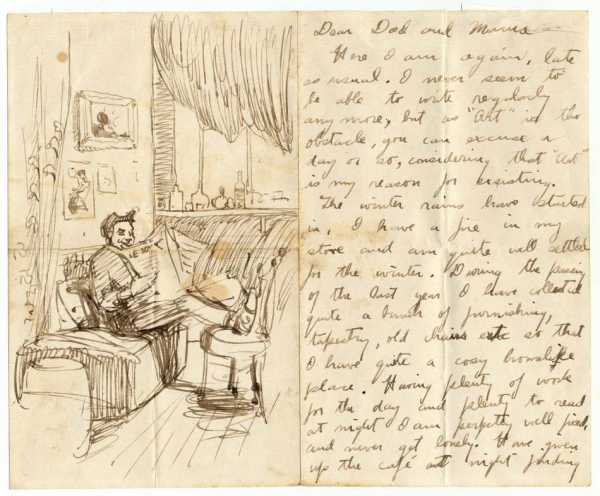 LE SO
Dear Dad and Mama
Here I am again, late
as usual. I never seem to
be able to write regularly
any more, but as "Art" is the
obstacle, you can excuse a
day or so, considering that "Art"
is my reason for existing.
The winter rains have started
in, I have a fire in my
stove and am quite well settled
for the winter. During the passing
of the last year I have collected
quite a bunch of furnishing,
tapestry, old chairs etc so that
I have quite a cosy homelike
place. Having plenty of work
for the day and plenty to read
at night I am perfectly well fixed,
and never get lonely. Have given
up the café at night finding